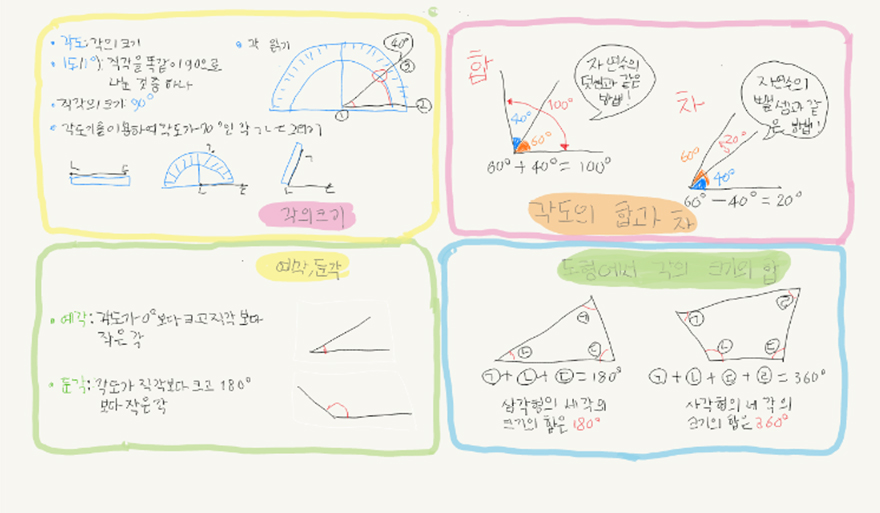 • 각도: 각의 크기
• 1도(1°): 직각을 똑같이 90으로
나눈 것 중 하나
• 직각의 크기 90°
• 각도기를 이용하여 각도가 70°인 각 ㄱㄴㄷ 그리기
각 읽기
40°
③
① ②
ㄴ ㄷ
ㄱ
ㄴ ㄷ
ㄱ
ㄴ ㄷ
각의 크기
합
자연수의
덧셈과 같은
방법!
100°
40°
60°
60°+40°=100°
차
자연수의
뺄셈과 같
은 방법!
20°
60°
40°
60°-40°=20°
각도의 합과 차
예각, 둔각
• 예각: 각도가 0°보다 크고 직각보다
작은 각
• 둔각: 각도가 직각보다 크고 180°
보다 작은 각
도형에서 각의 크기의 합
㉠
㉡ ㉢
㉠+㉡+㉢=180°
삼각형의 세 각의
크기의 합은 180°
㉠ ㉣
㉡ ㉢
㉠+㉡+㉢+㉣=360°
사각형의 네 각의
크기의 합은 360°